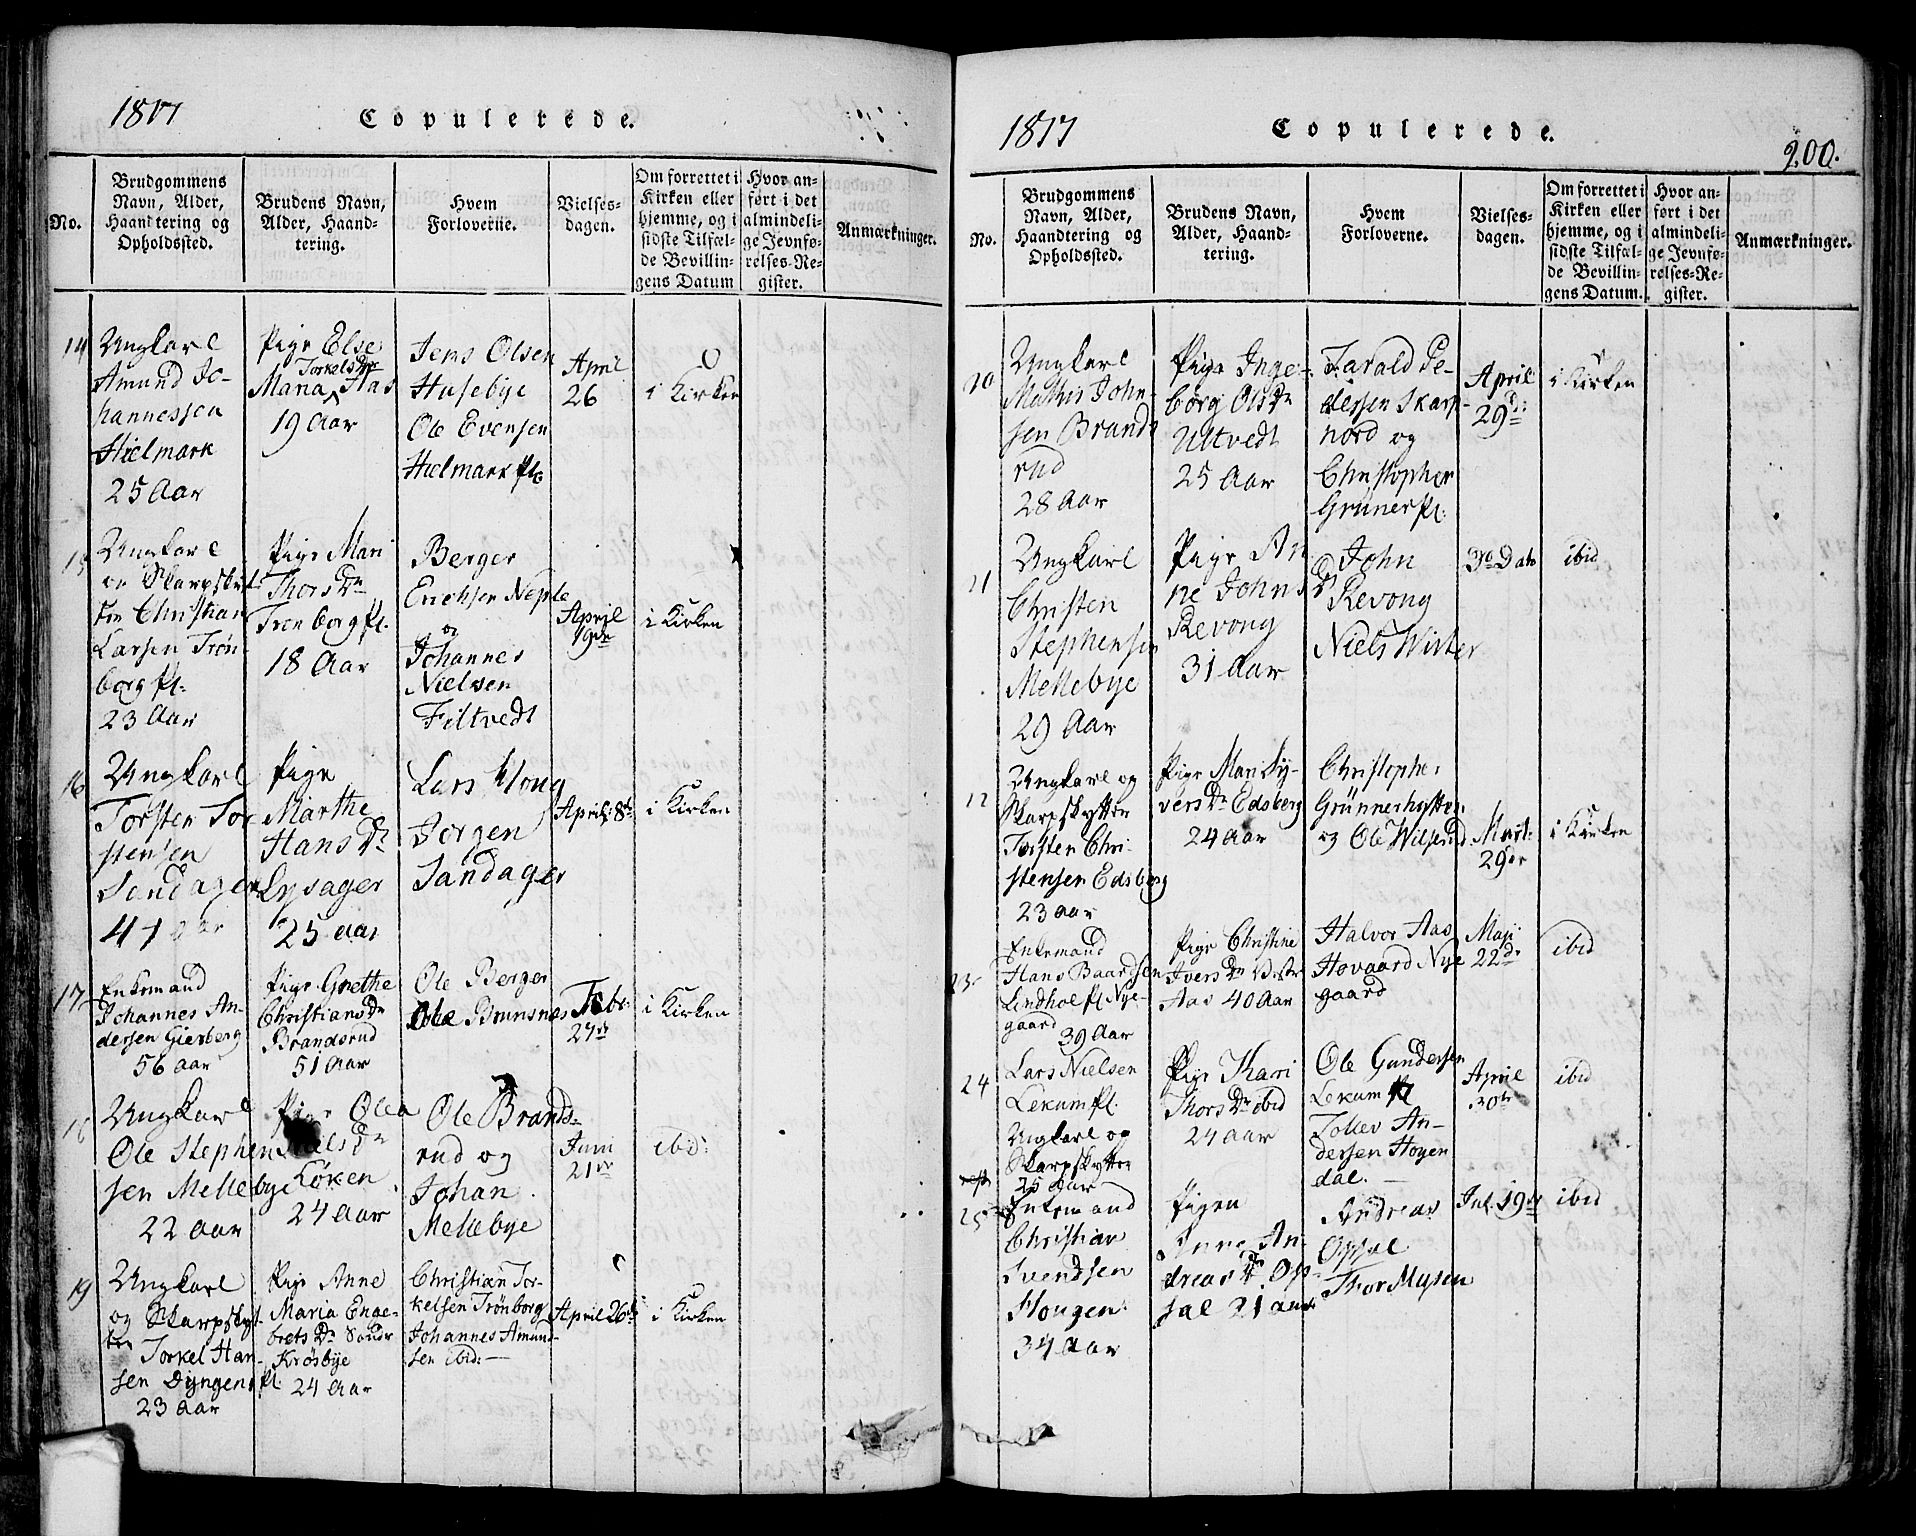 1817
Copulerede.
No.
Brudgommens Navn, Alder, Haandtering og Opholdssted.
Brudens Navn, Alder, Haandtering.
Hvem Forloverne.
Vielsesdagen.
Om forrettet i Kirken eller hjemme, og i sidste Tilfælde Bevillingens Datum
Hvor anført i det almindelige Jevnførelses-Register.
Anmærkninger.
14
Ungkarl
Amund Jo-
hannessen
Hielmark
25 Aar
Pige Else
Torkels Dtr
Maria Aas
19 Aar
Jens Olsen
Husebye
Ole Evensen
Hielmark pl.
April
26
i Kirken
15
Ungkarl
og Skarpskyt-
ter Christian
Larsen Trøn-
borg pl:
23 Aar
Pige Mari
Thors Dr
Trenborg pl.
18 Aar
Berger
Erichsen Neple
og
Johannes
Nielsen
Filtvedt
April
19de
i Kirken
16
Ungkarl
Torsten Tor
stensen
Sandager
41 Aar
Pige
Marthe
Hans Dr
Lysager
25 aar
Lars Moug
Jørgen
Sandager
April 8de
i Kirken
17
Enkemand
Johannes An-
dersen Gierberg
56 aar
Pige Grethe
Christians Dr
Brandsrud
51 Aar
Ole Berger
Ole Brunsnæs
Febr.
27de
i Kirken
18
Ungkarl
Ole Stephen
sen Mellebye
22 aar
Pige Olea
Niels Dr
Køken
24 aar
Ole Brands-
rud og
Johan
Mellebye
Juni
21de
ibid:
19
Ungkarl
og Skarpskyt-
ter Torkel Han-
sen Dyngen pl.
23 Aar
Pige Anne
Maria Enge-
brets Dr Søndr
Krøsbye
24 Aar
Christian Tor-
kelsen Trønborg
Johannes Amund-
sen ibid:
April 26de
i Kirken
1817
Copulerede.
200.
No.
Brudgommens Navn, Alder, Haandtering og Opholdssted.
Brudens Navn, Alder, Haandtering.
Hvem Forloverne.
Vielsesdagen.
Om forrettet i Kirken eller hjemme, og i sidste Tilfælde Bevillingens Datum.
Hvor anført i det almindelige Jevnførelses-Register.
Anmærkninger.
20
Ungkarl
Mathis John-
sen Brands
rud
28 Aar
Pige Inge-
borg Ols Dr
Ultvedt
25 Aar
Harald Pe-
dersen Skarp-
nord og
Christopher
Grüner pl:
April
29de
i Kirken
21
Ungkarl
Christen
Stephensen
Mellebye
29 Aar
Pige An
ne Johns Dr
Revong
31 Aar
John
Revong
Niels Winter
Dato
ibid
Ungkarl og
Skarpskytter
Torsten Chri-
stensen Edsberg
23 aar
Pige Mari Sy-
vers Dr Edsberg
24 Aar
Christopher
Grünnerhytten
og Ole
Mart:
29de
i Kirken
23
Enkemand
Hans Baardsen
Lindhol pl Nye-
gaard
39 Aar
Pige Christine
Ivers Dr
Aas 40 Aar
Halvor Aas
Hovaard Nye
gaard
Maji
22de
ibid
24
Lars Nielsen
Lekum pl.
Ungkarl og
Skarpskytter
25 aar
Pige Kari
Thors Dr ibid
24 aar
Ole Gundersen
Lekum pl
Tollev An-
dersen Høyen
dal.
April
30te
ibid
25
Enkemand
Christian
Svendsen
Hougen:
34 Aar
Pigen
Anne An-
dreas Dr Op-
sal 21 aar
Andreas
Opsal
Thor Mysen
Jul. 19de
ibid